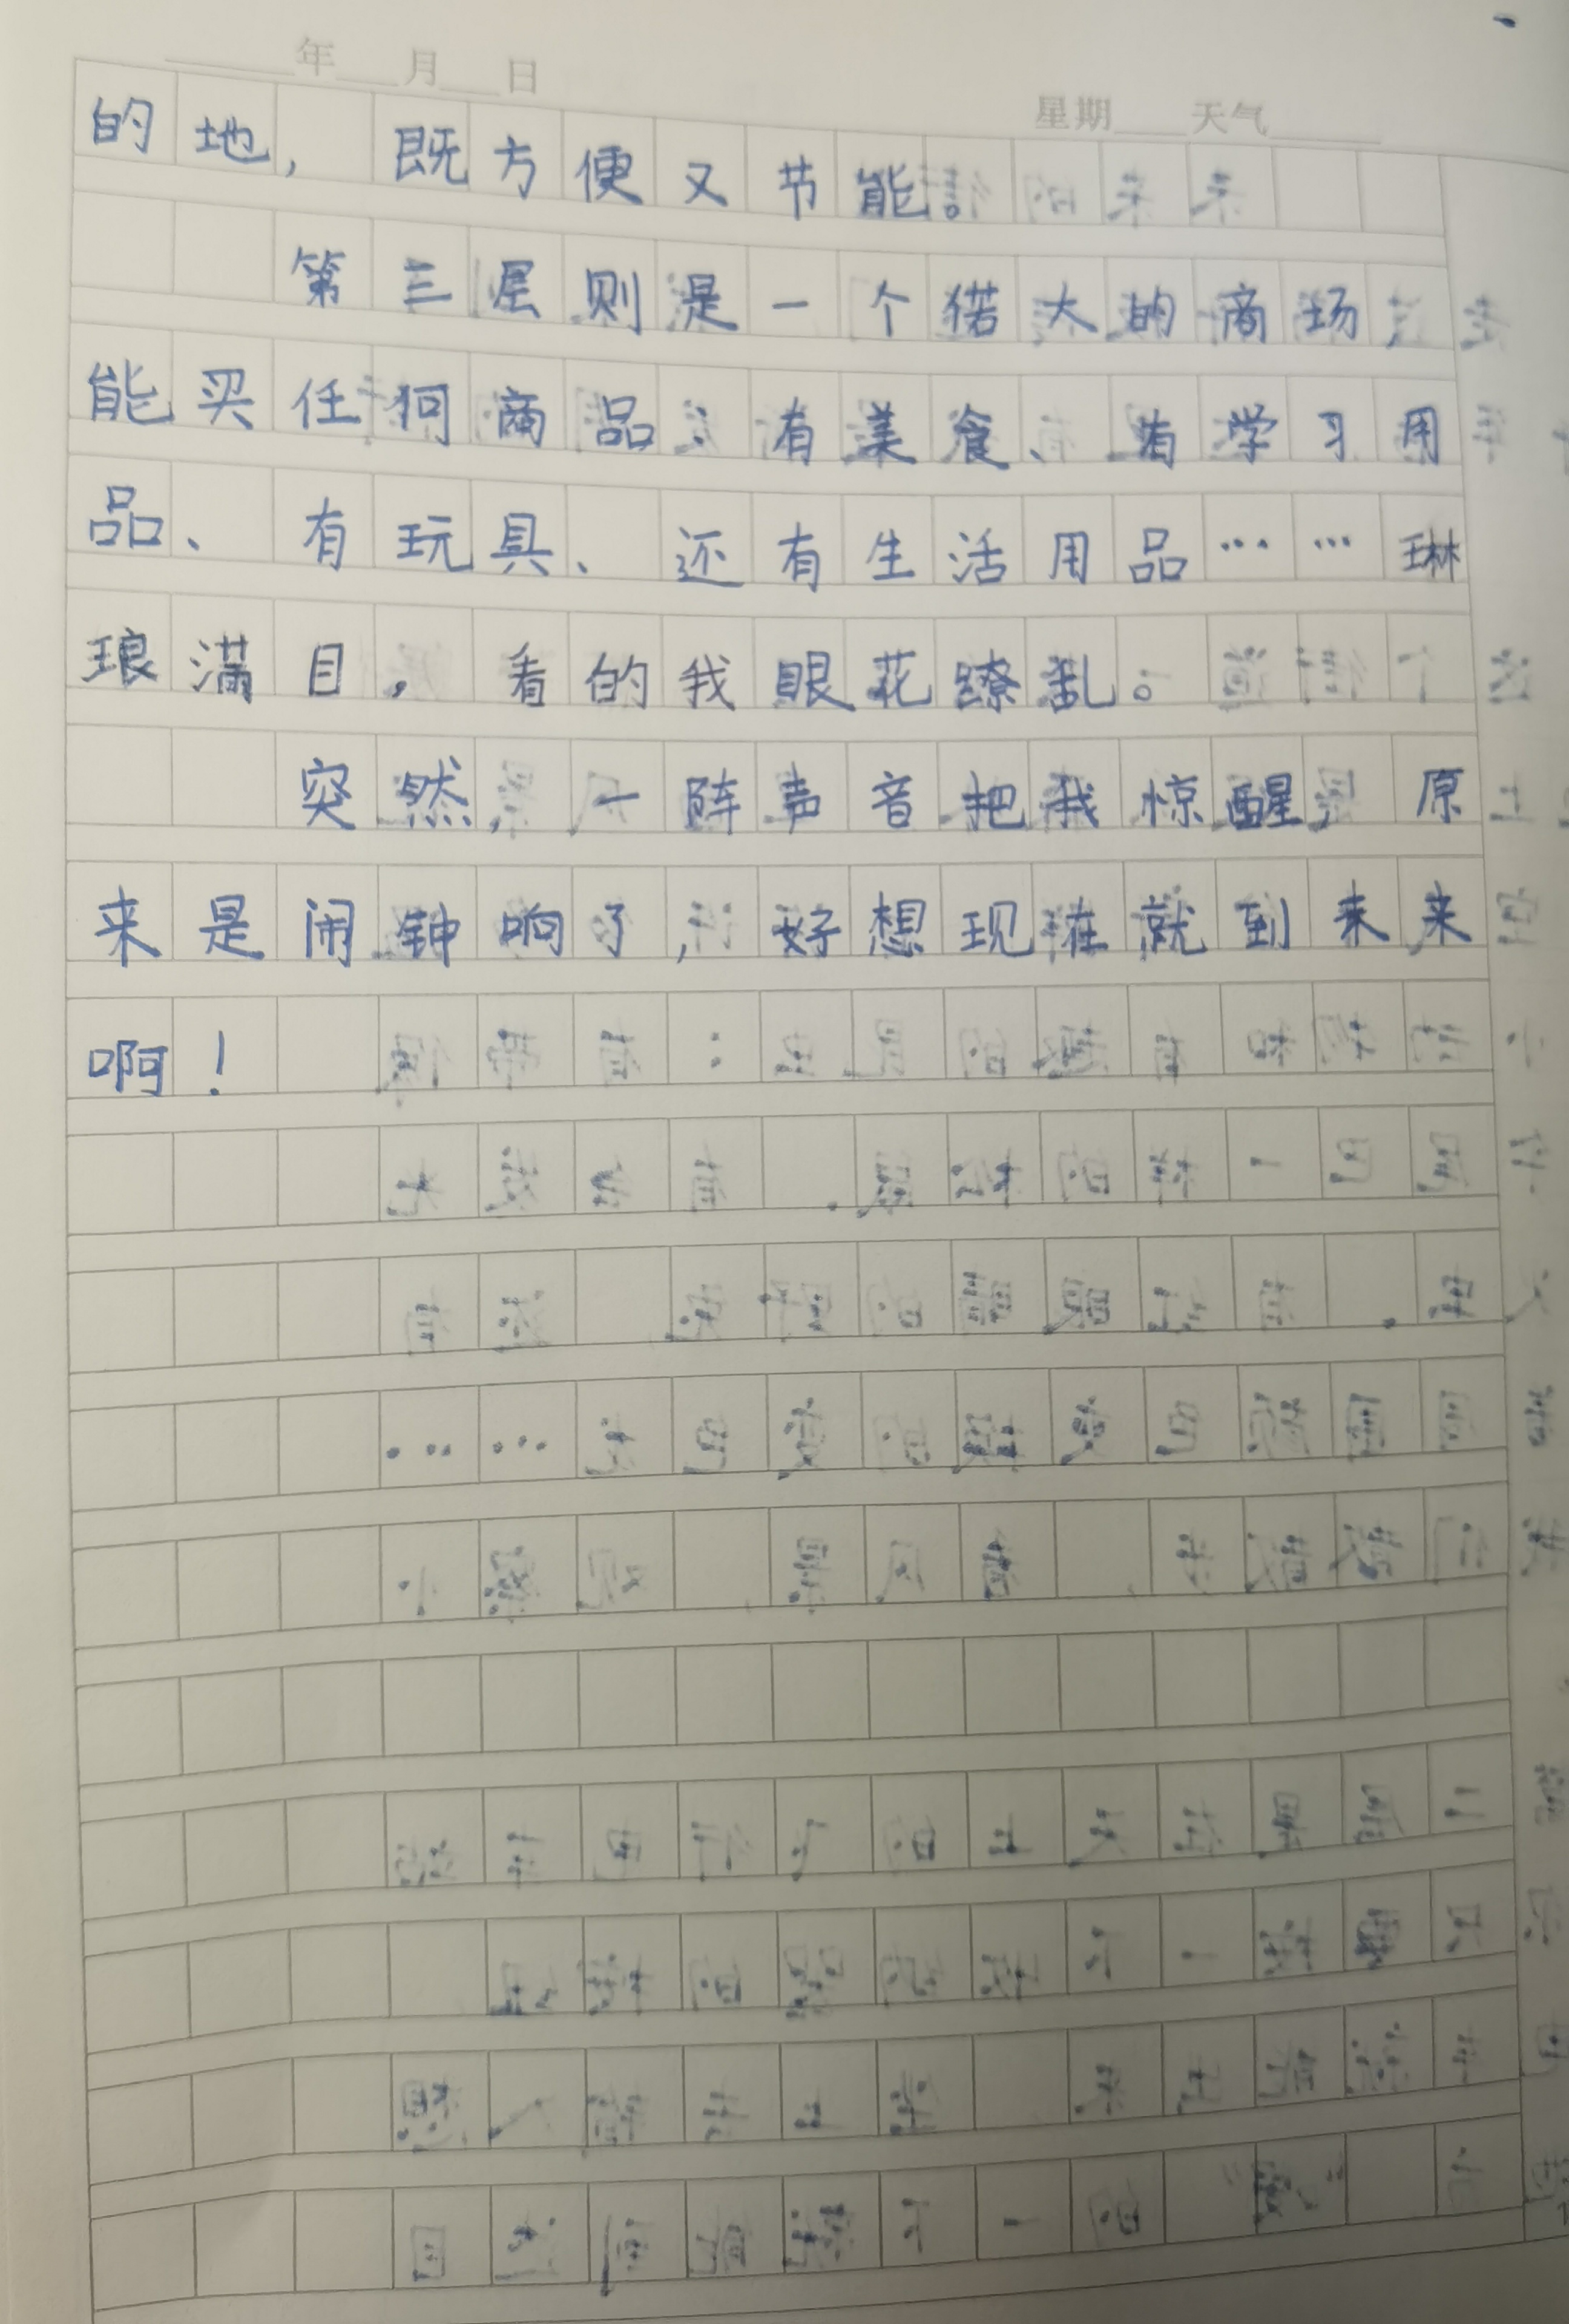 年 月 日
星期 天气
的地，既方便又节能。
第三层则是一个偌大的商场，
能买任何商品：有美食、有学习用
品、有玩具、还有生活用品……琳
琅满目，看的我眼花瞭乱。
突然，一阵声音把我惊醒，原
来是闹钟响了，好想现在就到未来
啊！